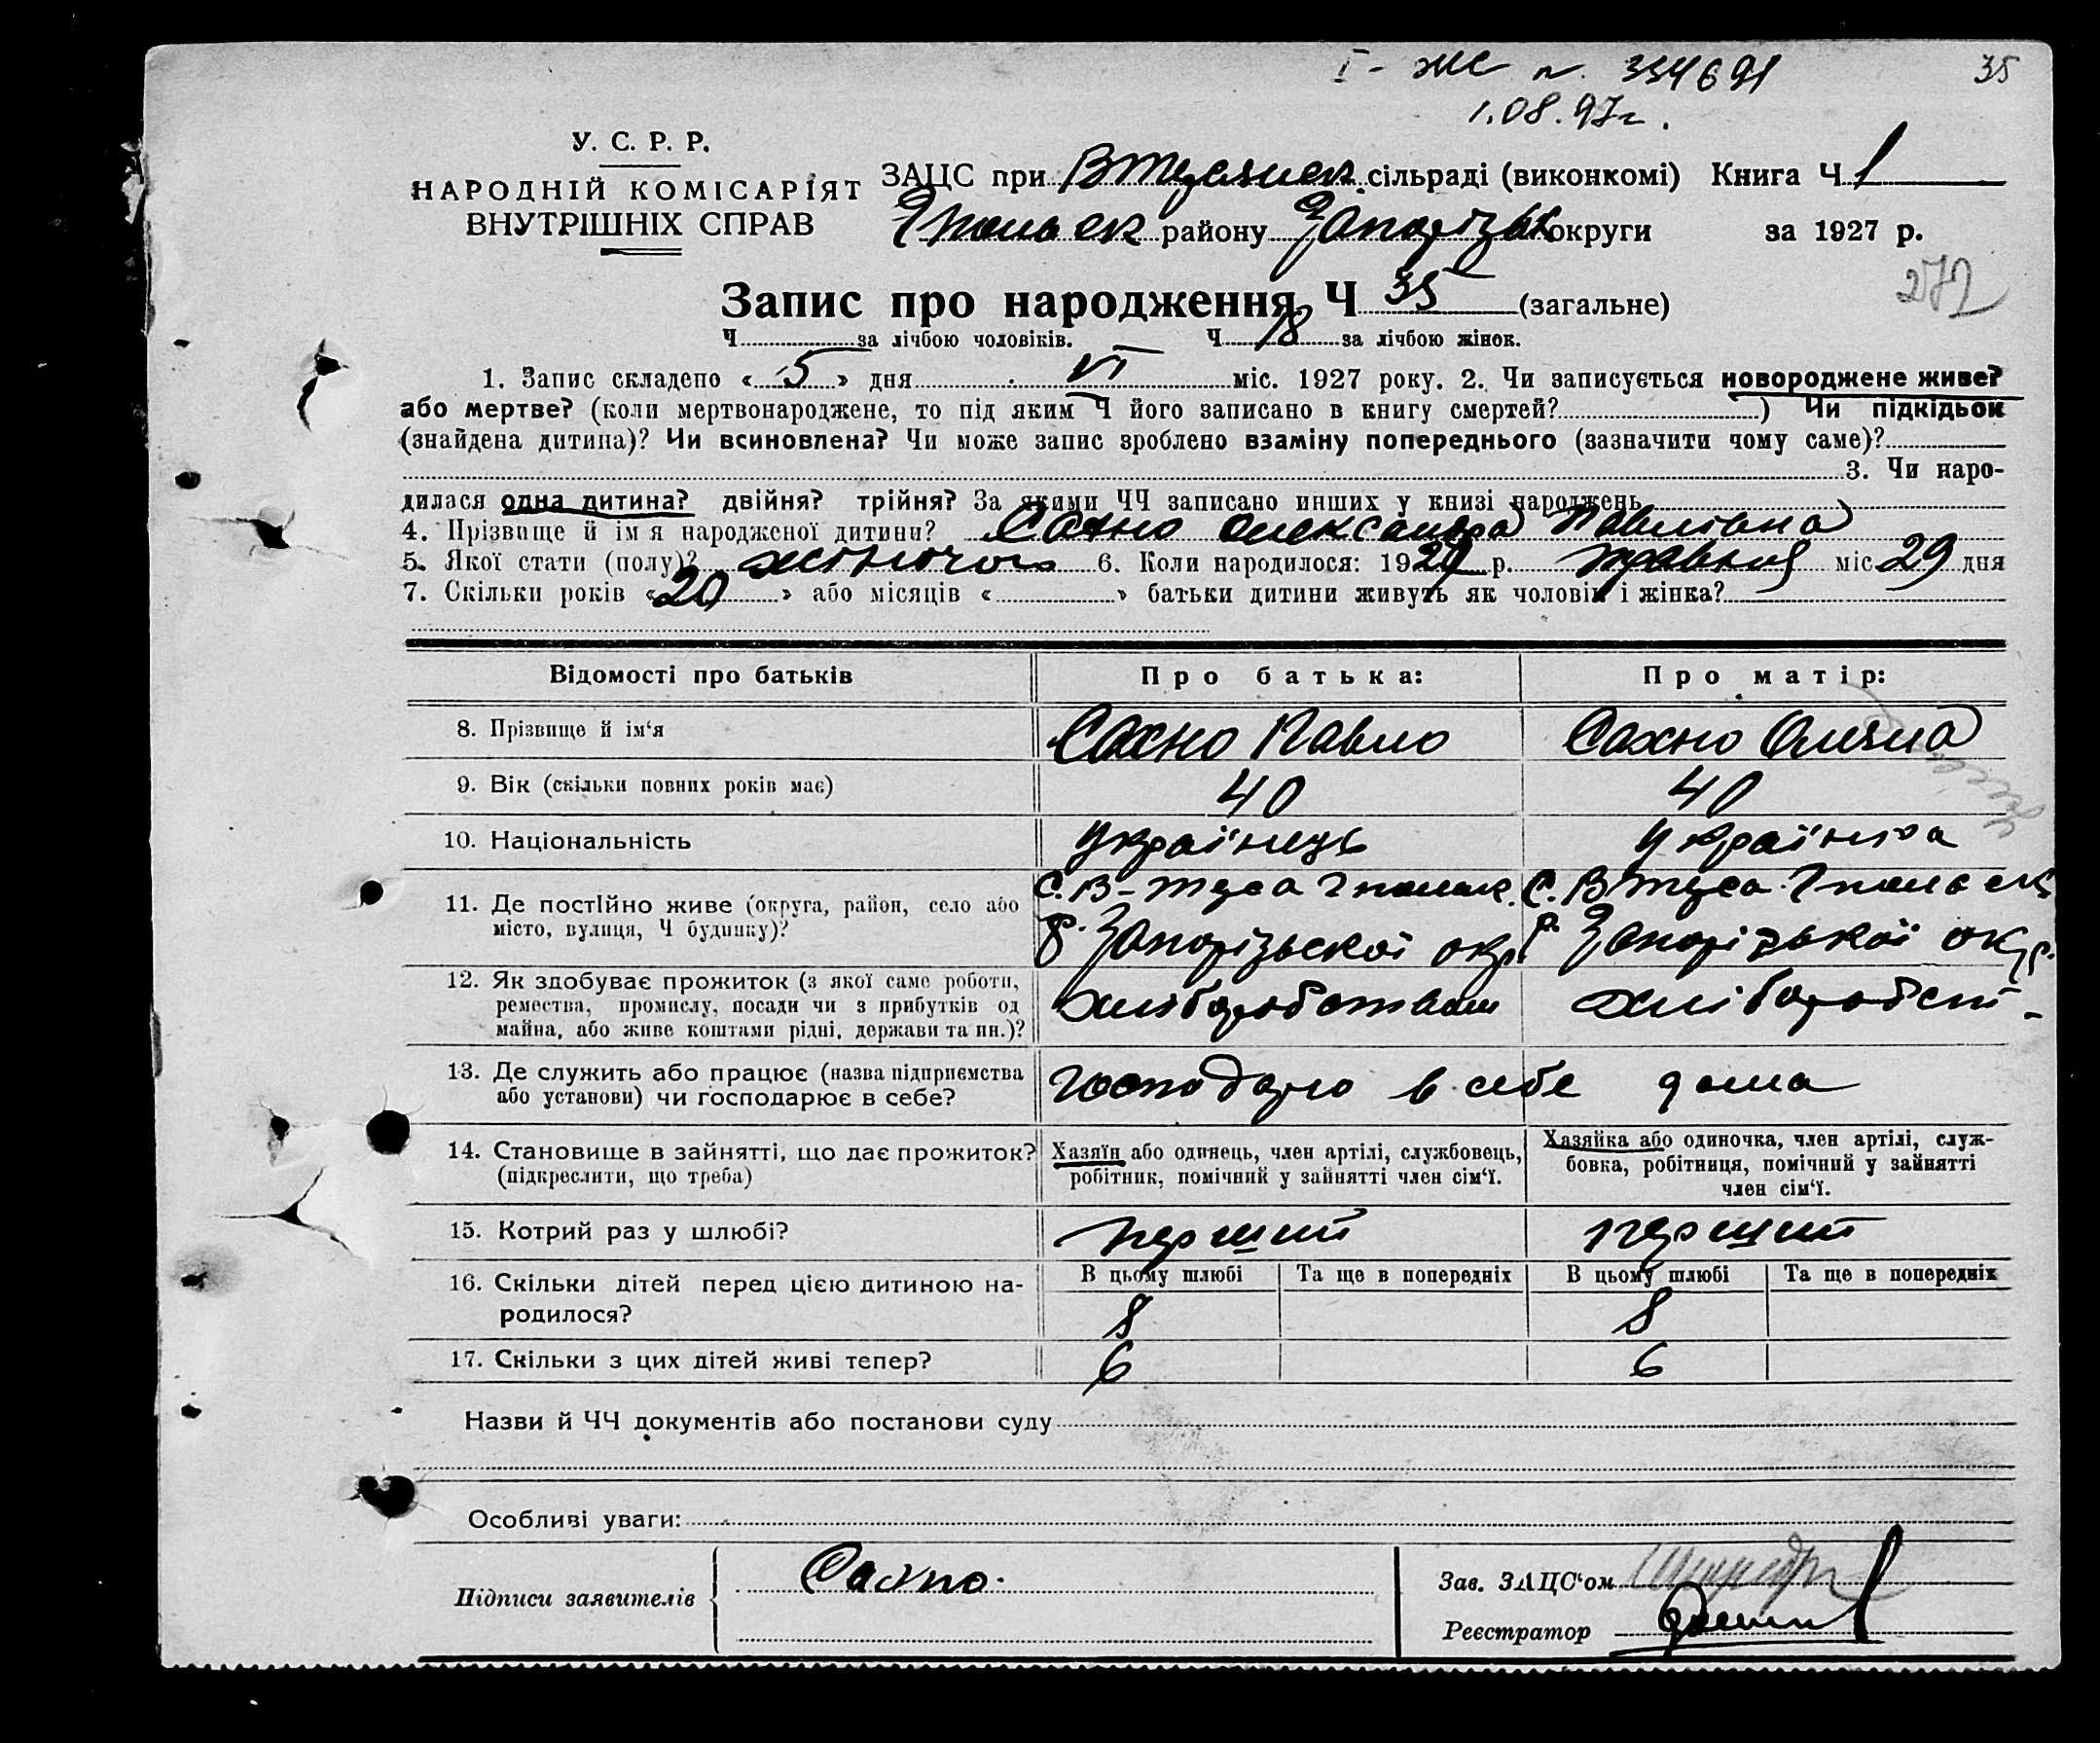 І - ЖС № 334691 35
1.08.97г.
У. С. Р. Р.
НАРОДНІЙ КОМІСАРІЯТ
ВНУТРІШНІХ СПРАВ
ЗАЦС при сільраді (виконкомі) Книга Ч 1
району Запорізьк округи за 1927 р.
272
Запис про народження Ч 35 (загальне)
Ч за лічбою чоловіків. Ч 18 за лічбою жінок.
1. Запис складено « 5 » дня VI міс. 1927 року. 2. Чи записується новороджене живе?
або мертве? (коли мертвонароджене, то під яким Ч його записано в книгу смертей? ) Чи підкідьок
(знайдена дитина)? Чи всиновлена? Чи може запис зроблено взаміну попереднього (зазначити чому саме)?
3. Чи наро-
дилася одна дитина? двійня? трійня? За якими ЧЧ записано инших у книзі народжень
4. Прізвище й ім я народженої дитини? Сахно Олександра Павлівна
5. Якої стати (полу)? жіночої 6. Коли народилося: 1927 р. травня міс 29 дня
7. Скільки років « 20 » або місяців « » батьки дитини живуть як чоловік і жінка?
Відомості про батьків Про батька: Про матір:
8. Прізвище й ім‘я Сахно Павло Сахно Оляна
9. Вік (скільки повних років має) 40 40
10. Національність українець українка
11. Де постійно живе (округа, район, село або
місто, вулиця, Ч будинку)?
с. В-Теса р. Запорізьської окр.
с. В Теса р. Запорізької окр.
12. Як здобуває прожиток (з якої саме роботи,
ремества, промислу, посади чи з прибутків од
майна, або живе коштами рідні, держави та ин.)?
хліборобством хліборобст-
13. Де служить або працює (назва підприємства
або установи) чи господарює в себе?
господарю в себе дома
14. Становище в зайнятті, що дає прожиток?
(підкреслити, що треба)
Хазяїн або одинець, член артілі, службовець,
робітник, помічний у зайнятті член сім‘ї.
Хазяйка або одиночка, член артілі, служ-
бовка, робітниця, помічний у зайнятті
член сім‘ї.
15. Котрий раз у шлюбі? перший перший
16. Скільки дітей перед цією дитиною на-
родилося?
В цьому шлюбі Та ще в попередніх В цьому шлюбі Та ще в попередніх
8 8
17. Скільки з цих дітей живі тепер? 6 6
Назви й ЧЧ документів або постанови суду
Особливі уваги:
Підписи заявителів Сахно.
Зав. ЗАЦС‘ом
Реєстратор